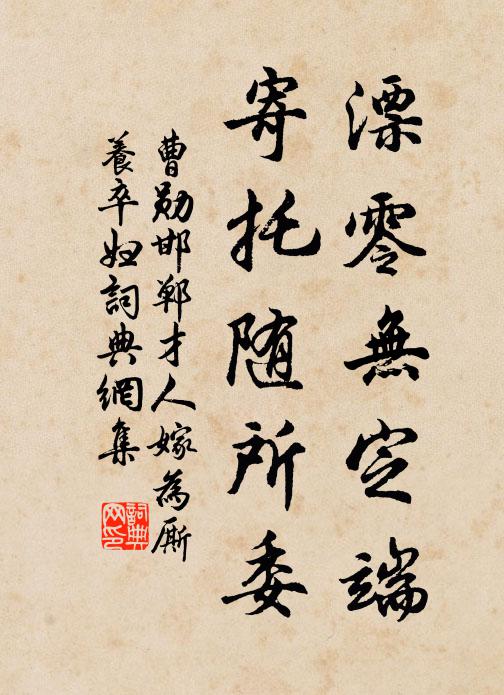 漂零無定端
寄托随所委
曹勋邯郸才人嫁為厮
養卒妇詞典網集
詞典网印